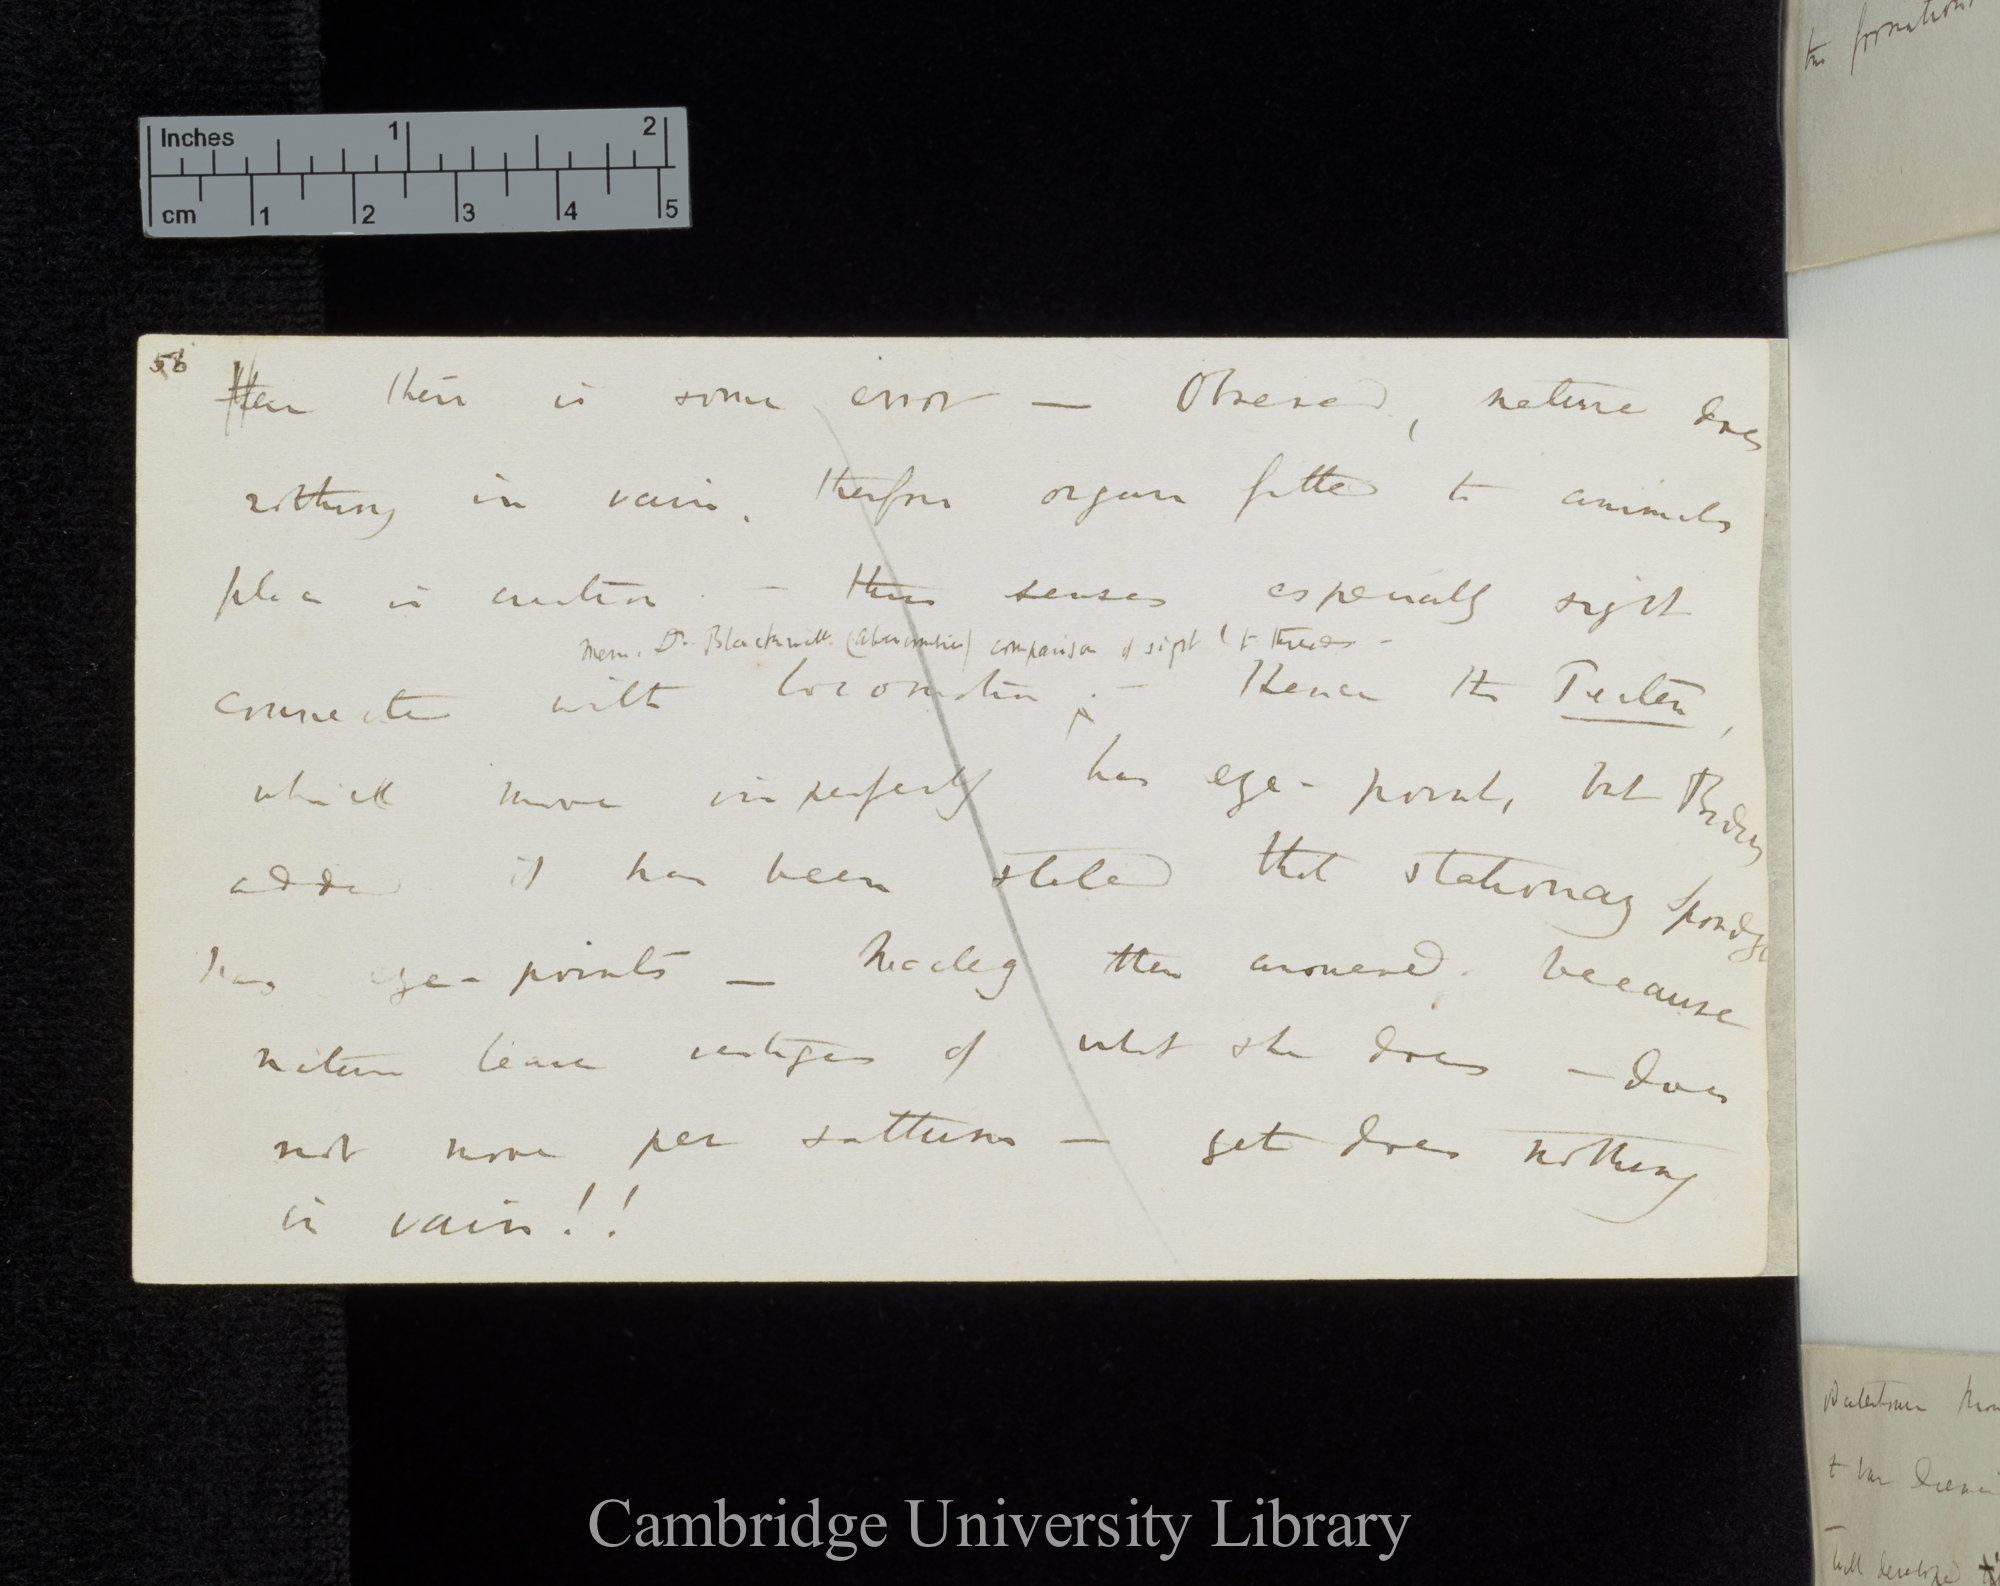 the formations
Inches 1 2
cm 1 2 3 4 5
56
Here there is some error — Observed, nature does
nothing in vain, therefore organ fitted to animals
place in creation. — thus senses especially sight
mem. Dr. Blacklock (Abercrombie) comparison of sight to threads —
connected with locomotion. — Hence the Pecten,
which move imperfectly has eye-points, but Body
added it has been stated that stationary Spondyl
has eye-points — Macleay then answered. because
nature leave vestiges of what she does — does
not move per saltum — yet does nothing
in vain!!
Waterhouse
will develope
Cambridge University Library